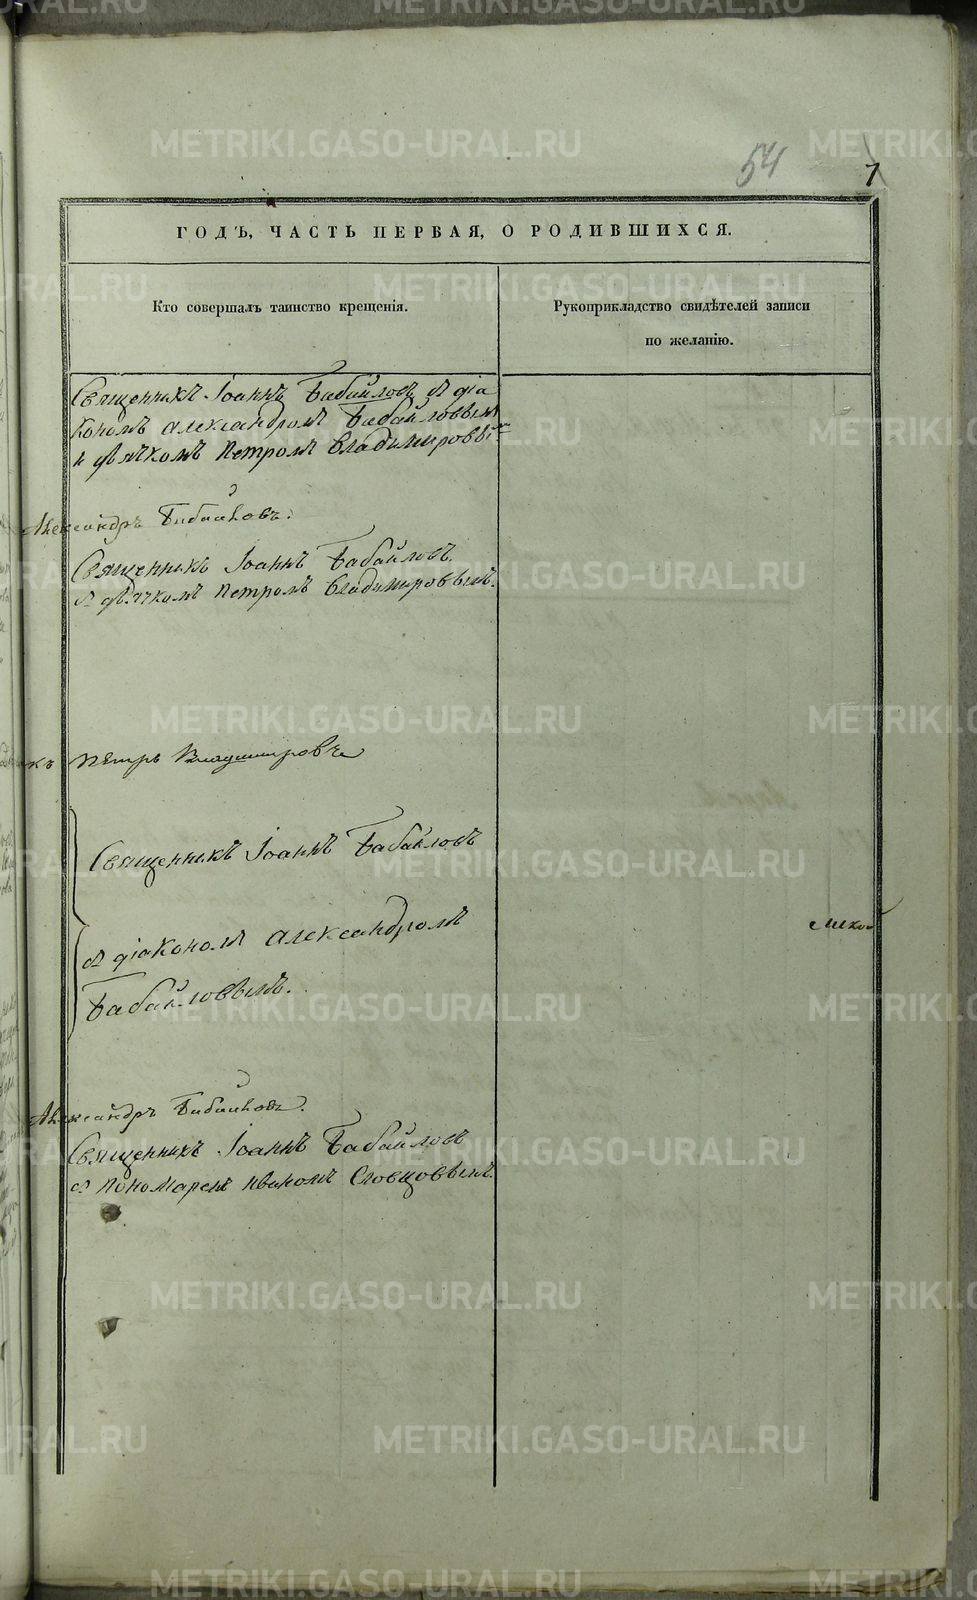 METRIKI.GASO-URAL.RU
54
7
ГОДЪ, ЧАСТЬ ПЕРВАЯ, О РОДИВШИХСЯ.
Кто совершалъ таинство крещенія.
Рукоприкладство свидѣтелей записи
по желанію.
Священникъ Іоаннъ Бабайловъ съ діа
кономъ Александромъ Бабайловымъ
и дьячкомъ Петромъ Владимировы
Александръ Бабайловъ.
Священникъ Іоаннъ Бабайловъ
съ дьячкомъ Петромъ Владимировымъ.
къ Петръ Владимировъ
Священникъ Іоаннъ Бабайловъ
съ діакономъ Александромъ
Бабайловымъ.
Александръ Бабайловъ.
Священникъ Іоаннъ Бабайловъ
съ пономаремъ Иваномъ Словцовымъ.